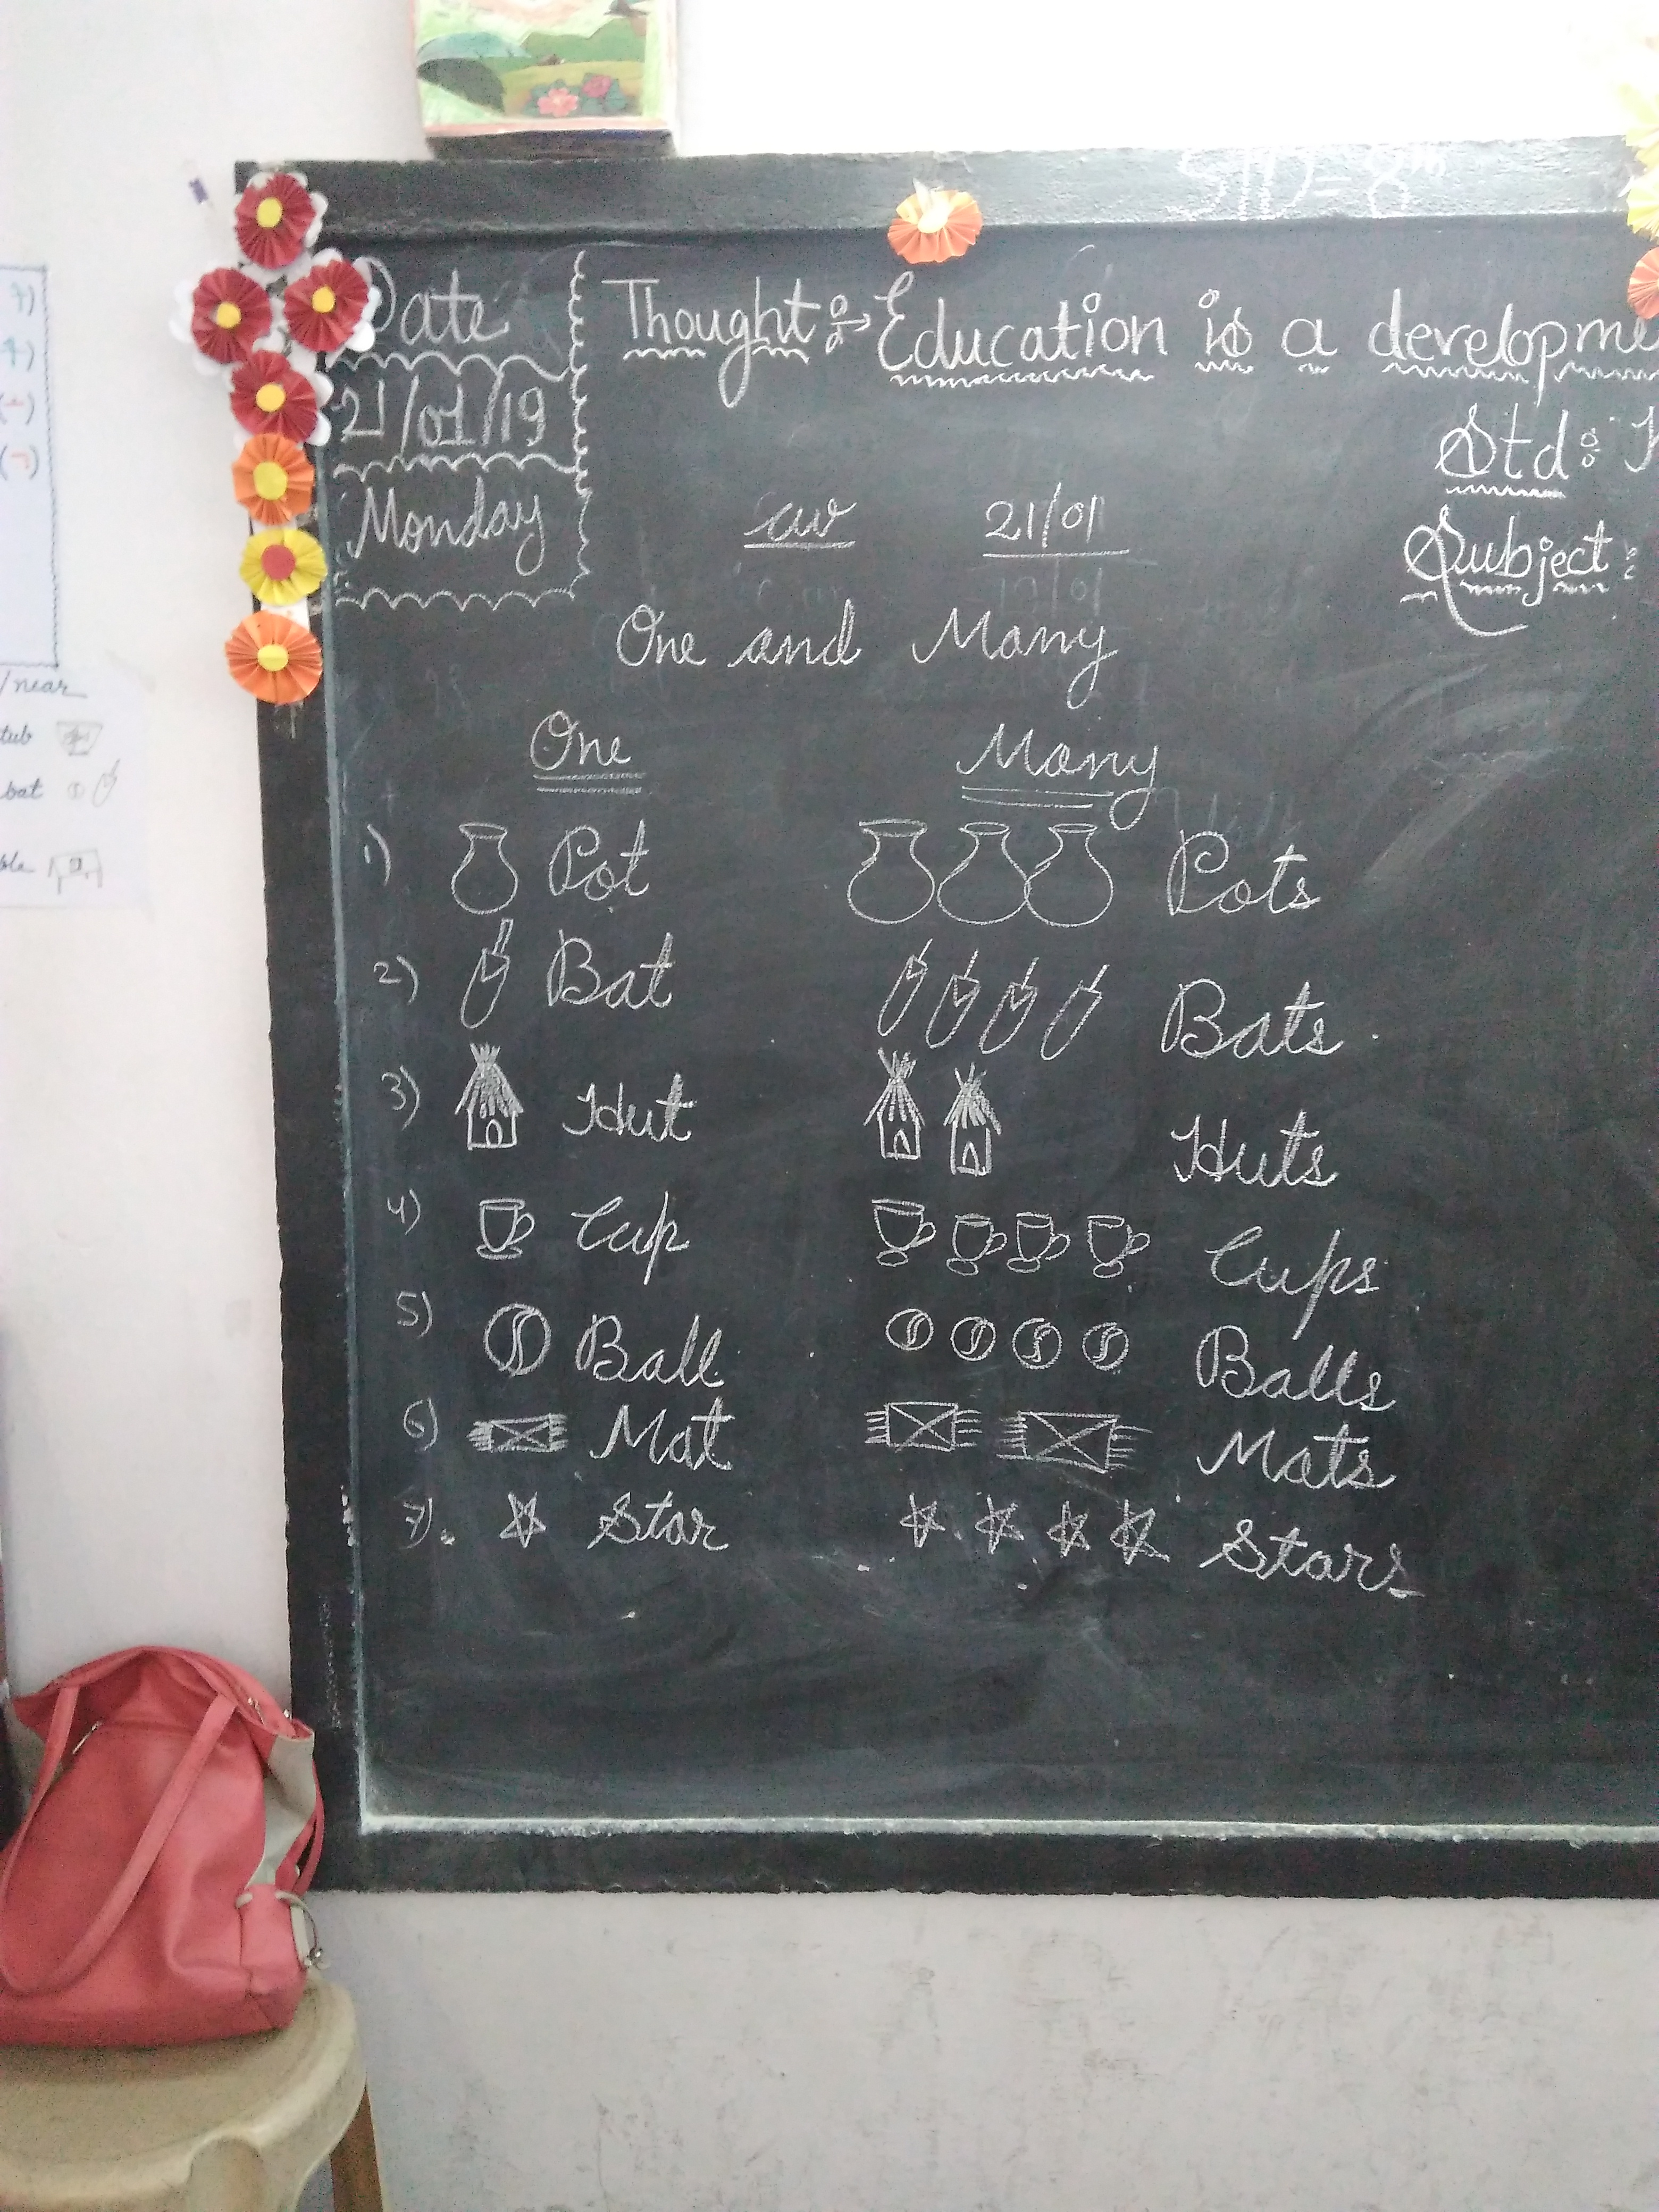 STD = 8th
Date
21/01/19
Monday
Thought :→ Education is a developme
Std :
Subject :
cw 21/01
One and Many
One Many
1) Pot Pots
2) Bat Bats
3) Hut Huts
4) Cup Cups
5) Ball Balls
6) Mat Mats
7) Star Stars
/near
tub
bat
ble